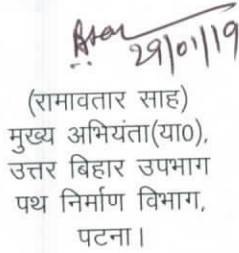 29/01/19
(रामावतार साह)
मुख्य अभियंता(या0),
उत्तर बिहार उपभाग
पथ निर्माण विभाग,
पटना।